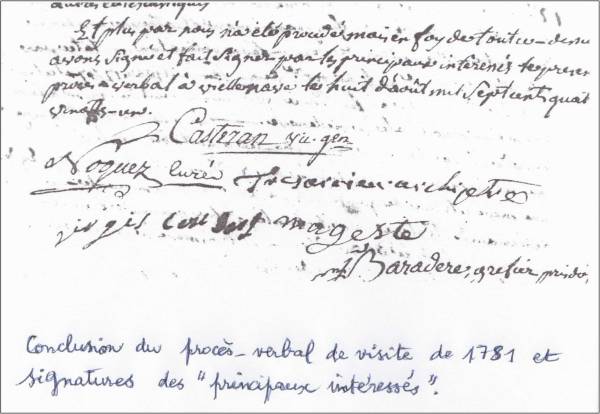 Et plus par nous n'a été procédé mais en foy de tout ce dessu
avons signé et fait signer par les principaux intéressés le présen
procès-verbal à viellenave le huit d'août mil sept cents quat
vingts-un.
Casteran vic. gen
Noquez curé archiprêtre
jurat mageste
Baradere, grefier
Conclusion du procès-verbal de visite de 1781 et
signatures des "principaux intéressés".